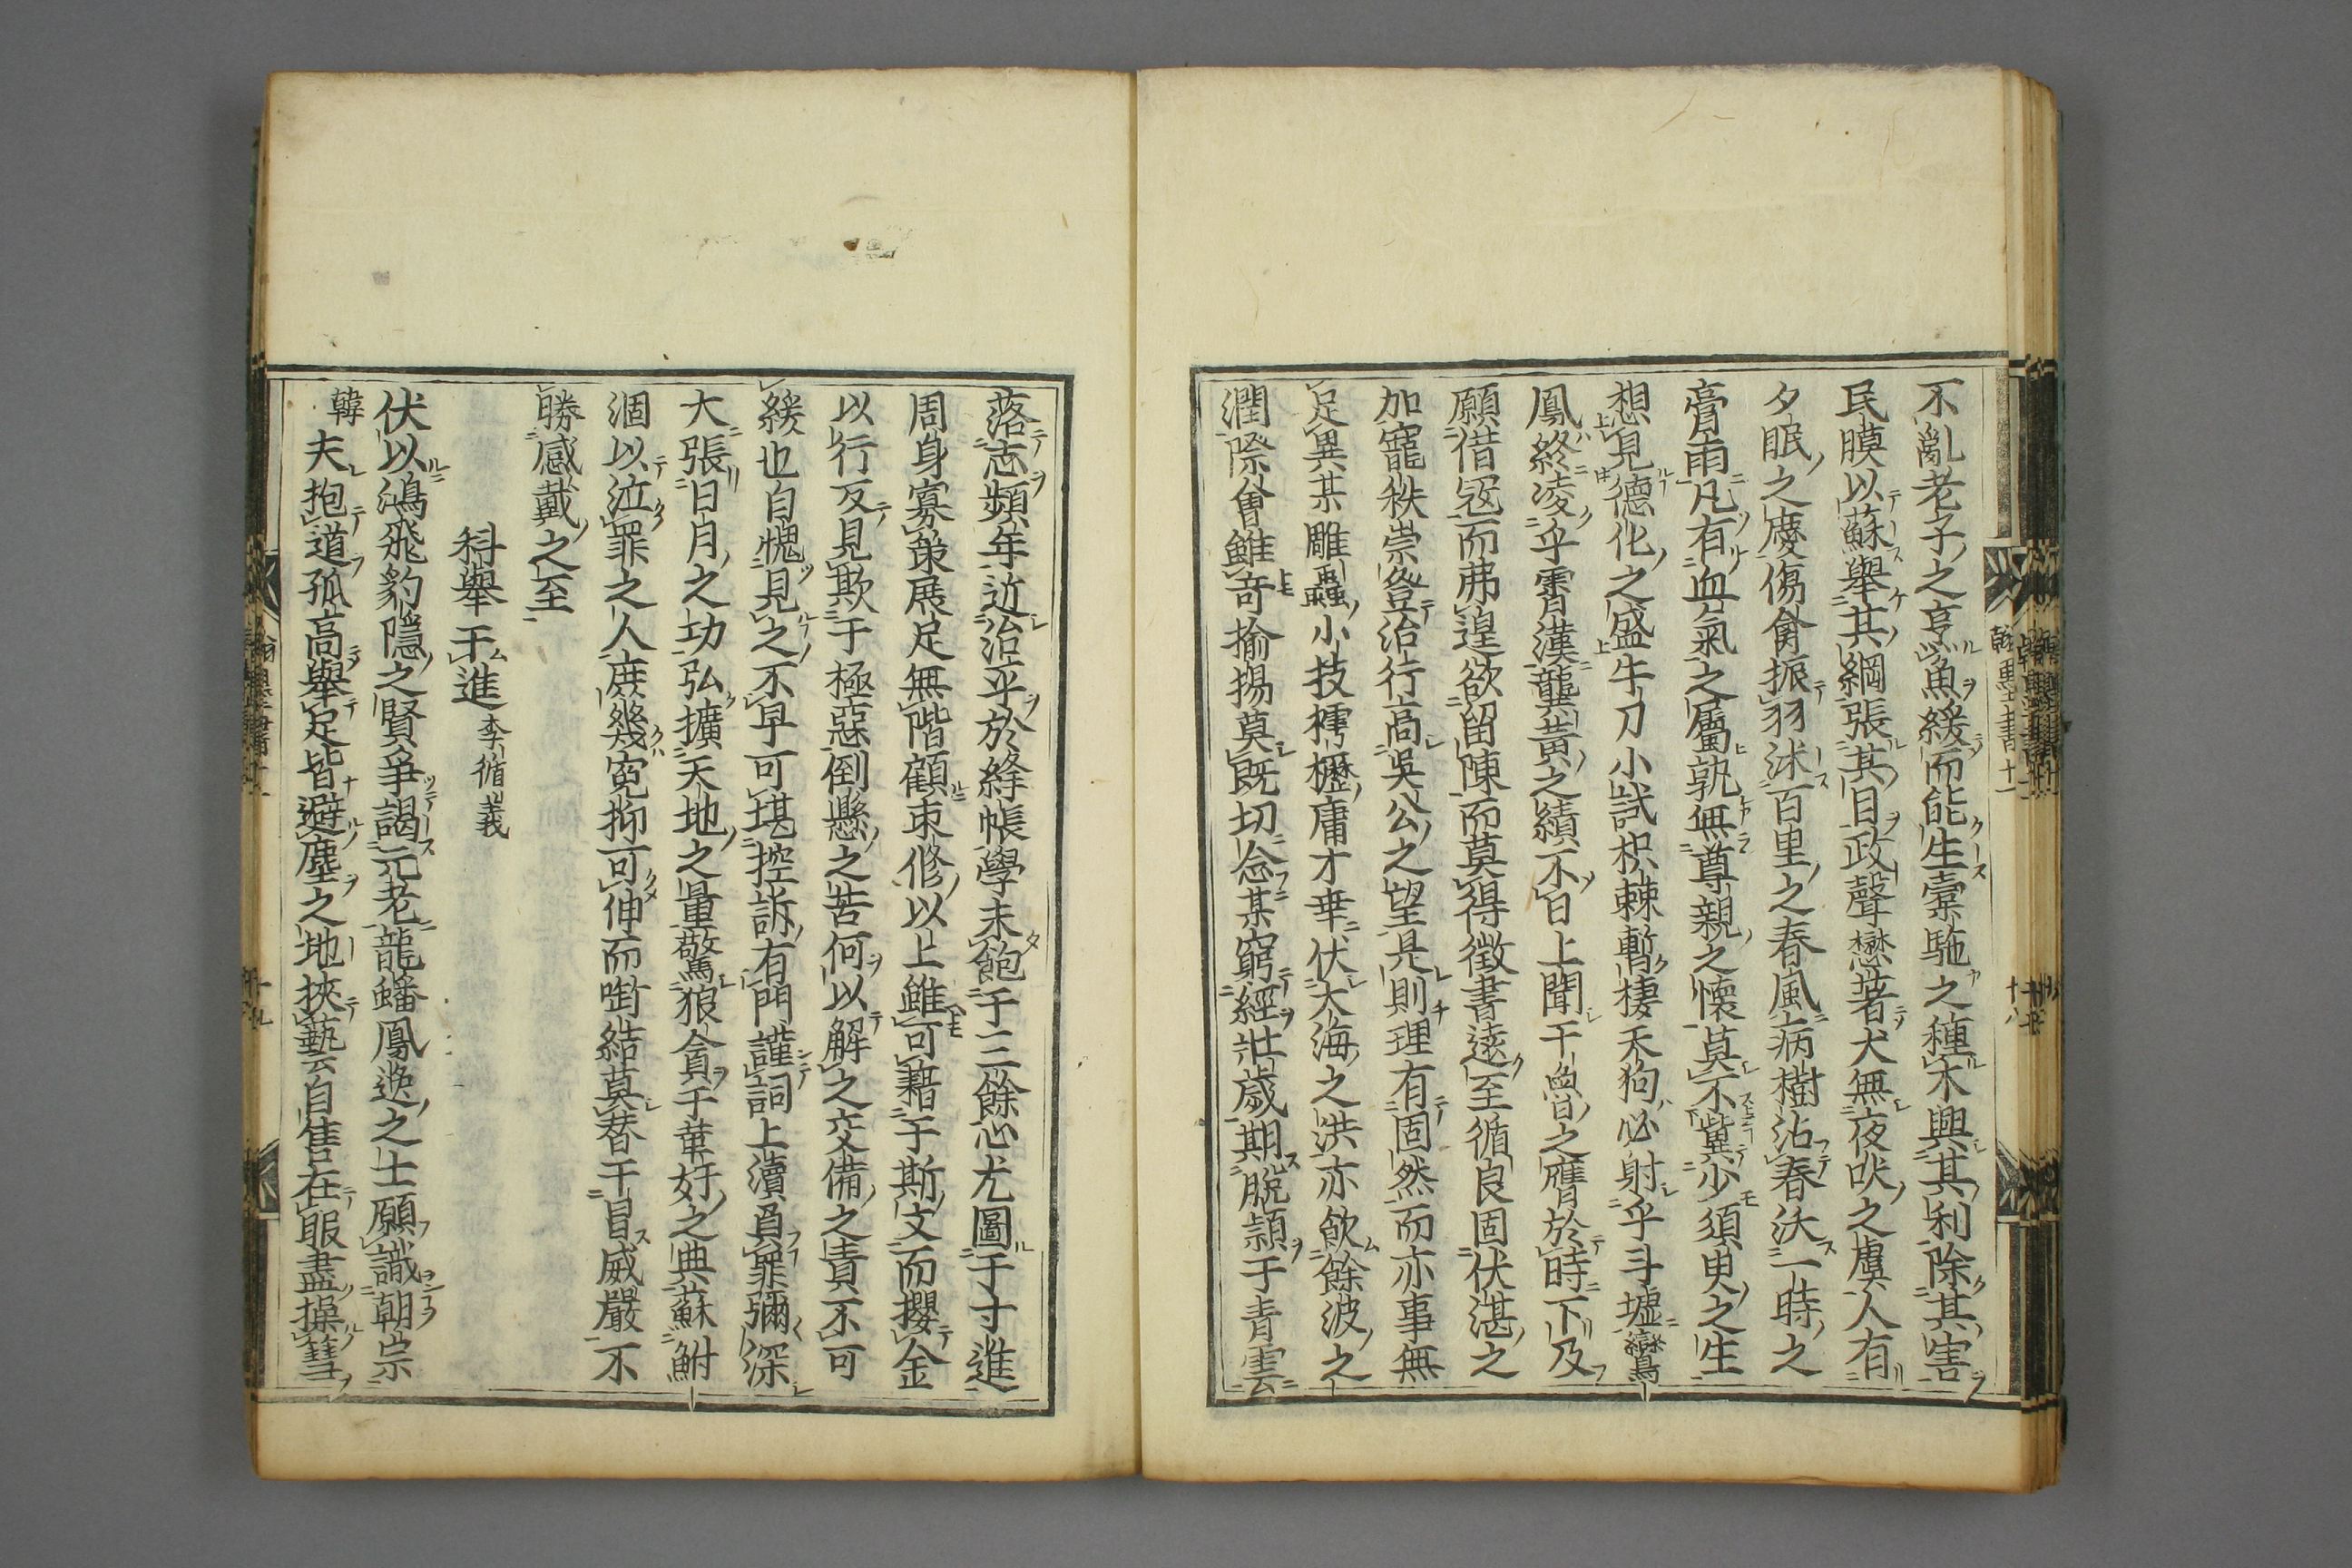 不亂老子之亨魚緩而能生橐駞之種木興其利除其害
民膜以蘇舉其綱張其目政聲懋著犬無夜吠之虞人有
夕眠之慶傷禽振羽沐百里之春風病樹沾春沃一時之
膏雨凡有血氣之屬孰無尊親之懷莫不冀少須臾之生
想見德化之盛牛刀小試枳棘暫棲天狗必射乎斗墟鸞
鳳終凌乎霄漢龔黃之績不日上聞干魯之膺於時下及
願借冦而弗遑欲留陳而莫得徵書遠至循良固伏湛之
加寵秩崇登治行高吳公之望是則理有固然而亦事無
足異某雕蟲小技樗櫪庸才幸伏大海之洪亦飲餘波之
潤際會雖奇揄揚莫既切念某窮經壯歲期脫潁于青雲
落志頻年近治平於絳帳學未飽于三餘心尤圖于寸進
周身寡策展足無階顧束修以上雖可藉于斯文而攖金
以行反見欺于極惡倒懸之苦何以解之交備之責不可
緩也自愧見之不早可堪控訴有門謹詞上瀆負罪彌深
大張日月之功弘擴天地之量驚狼貪于葦好之典蘇鮒
涸以泣罪之人庶幾寃抑可伸而啣結莫替干冒威嚴不
勝感戴之至
科舉干進 李循義
伏以鴻飛豹隱之賢爭謁元老龍蟠鳳逸之士願識朝宗
韓 夫抱道孤高舉足皆避塵之地挾藝自售在服盡操彗
翰墨書十一
十八